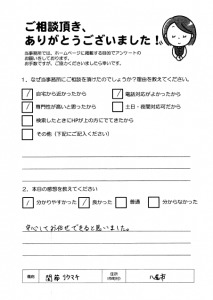 ご相談頂き、
ありがとうございました！
当事務所では、ホームページに掲載する目的でアンケートの
お願いをしております。
お手数ですが、ご協力くださいましたら幸いです。
1、なぜ当事務所にご相談を頂けたのでしょうか？理由を教えてください。
自宅から近かったから
電話対応がよかったから
専門性が高いと思ったから
土日・夜間対応可だから
検索したときにHPが上の方にでてきたから
その他（下記にご記入ください）
2、本日の感想を教えてください
分かりやすかった
良かった
普通
分からなかった
安心してお任せできると思いました。
八尾市